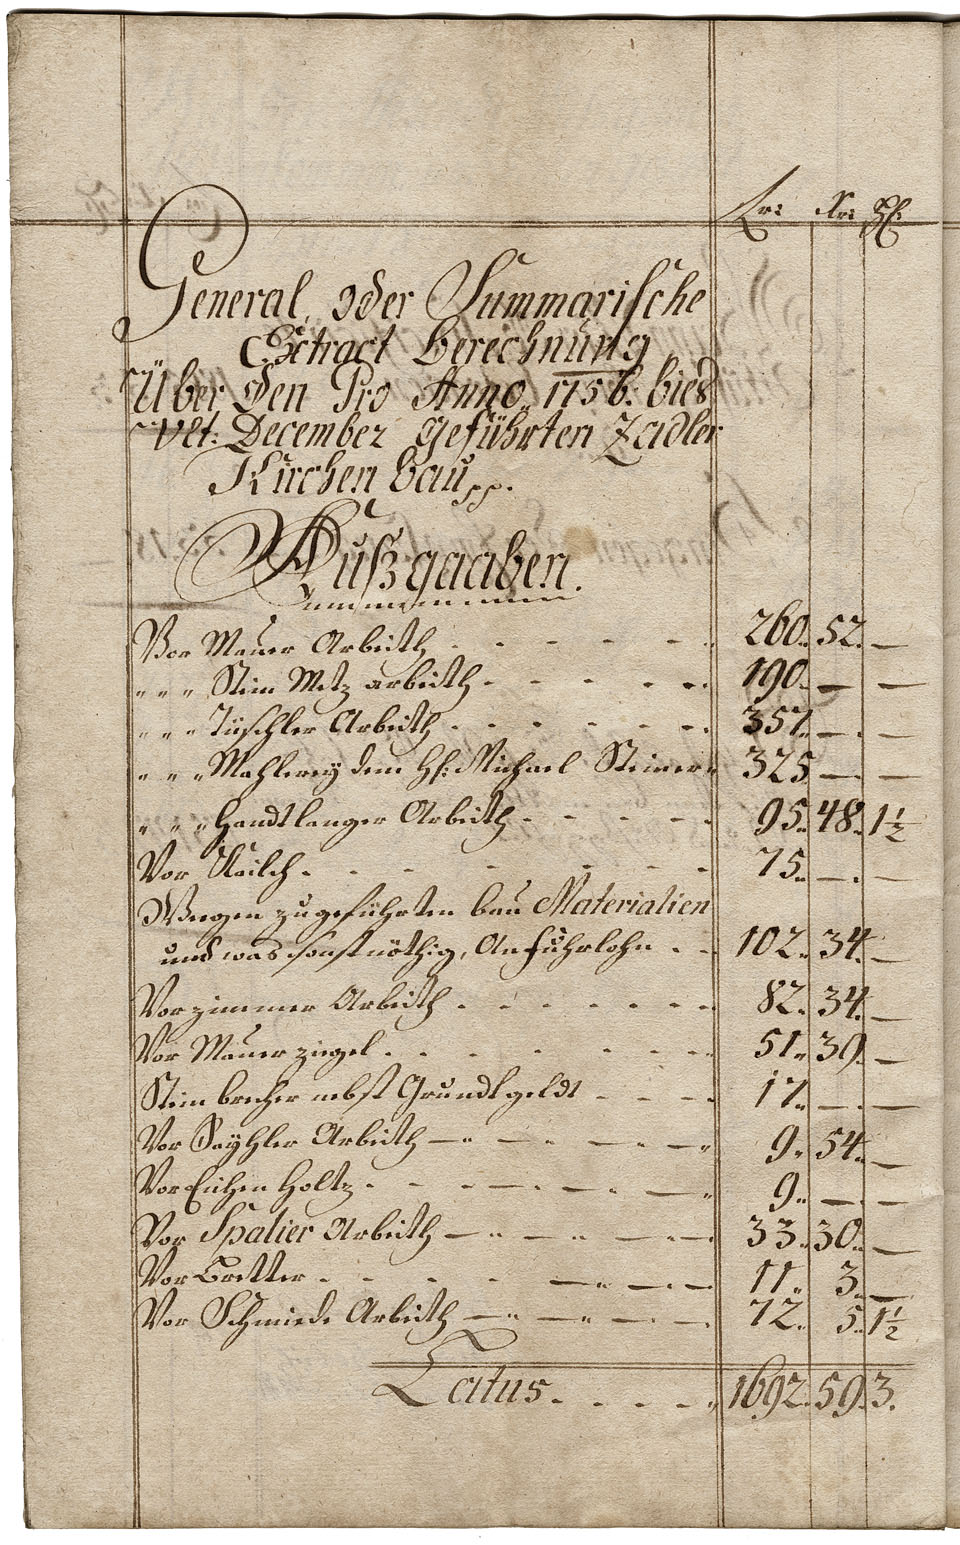 Fr: Xr: Hl:
General oder Summarische
Extract berechnung
Über den Pro Anno 1756: bies
Ult: December geführten Zadler
Kirchen bau pp.
Außgaaben.
Vor Mauer Arbeith 260. 52. —
" " " Stein Metz arbeith 190. — —
" " " Tüschler Arbeith 357. — —
" " " Mahlerey dem H: Michael Steiner 325 — —
" " " Handtlanger Arbeith 95. 48. 1½
Vor Kalch 75. — —
Wegen zugeführten bau Materialien
und was sonst nöthig, Anfuhrlohn 102. 34. —
Vor zimmer Arbeith 82. 34. —
Vor Mauer ziegel 51. 39. —
Stein brecher nebst Grundtgeldt 17. — —
Vor Arbeith 9. 54. —
Vor Eichen Holtz 9. — —
Vor Spalier Arbeith 33. 30. —
Vor Bretter 11. 3. —
Vor Schmiede Arbeith 72. 5. 1½
Latus 1692. 59. 3.